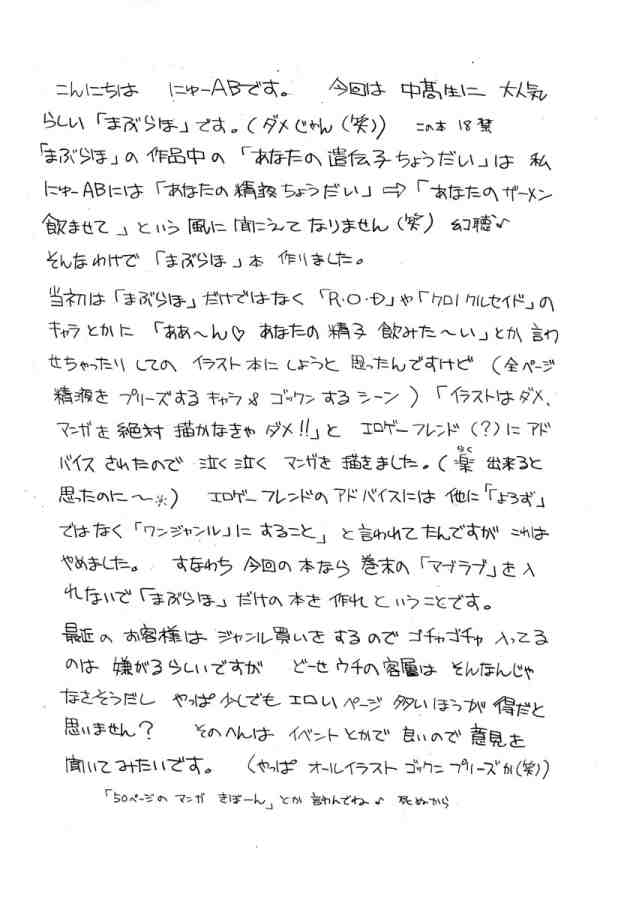 こんにちは にゅーABです。 今回は 中高生に 大人気
らしい「まぶらほ」です。(ダメじゃん(笑)) この本 18禁
「まぶらほ」の 作品中の「あなたの遺伝子ちょうだい」は 私
にゅーABには「あなたの精液ちょうだい」⇨「あなたのザーメン
飲ませて」という 風に 聞こえて なりません(笑) 幻聴♪
そんなわけで「まぶらほ」本 作りました。
当初は「まぶらほ」だけではなく「R・O・D」や「クロノクルセイド」の
キャラとかに 「ああ〜ん♡ あなたの 精子 飲みた〜い」とか 言わ
せちゃったり しての イラスト本に しようと 思ったんですけど (全ページ
精液を プリーズする キャラ& ゴックン する シーン)「イラストは ダメ、
マンガを 絶対 描かなきゃ ダメ!!」と エロゲーフレンド(?)に アド
バイス されたので 泣く泣く マンガを 描きました。(楽 出来ると
らく
思ったのに〜) エロゲーフレンドの アドバイスには 他に「「よろず」
ではなく「ワンジャンル」に すること」と 言われてたんですが これは
やめました。 すなわち 今回の 本なら 巻末の「マブラブ」を 入
れないで「まぶらほ」だけの 本を 作れ ということです。
最近の お客様は ジャンル買いを するので ゴチャゴチャ 入ってる
のは 嫌がるらしいですが どーせ ウチの 客層は そんなんじゃ
なさそうだし やっぱ 少しでも エロいページ 多いほうが 得だと
思いません? そのへんは イベントとかで 良いので 意見を
聞いてみたいです。 (やっぱ オールイラスト ゴックン プリーズか(笑))
「50ページの マンガ きぼーん」とか 言わんでね♪ 死ぬから